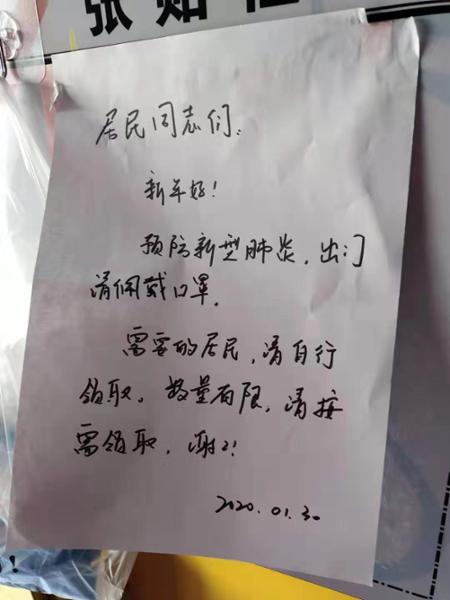 张贴
居民同志们:
新年好!
预防新型肺炎,出门
请佩戴口罩。
需要的居民,请自行
领取。数量有限,请按
需领取,谢谢!
2020.01.30